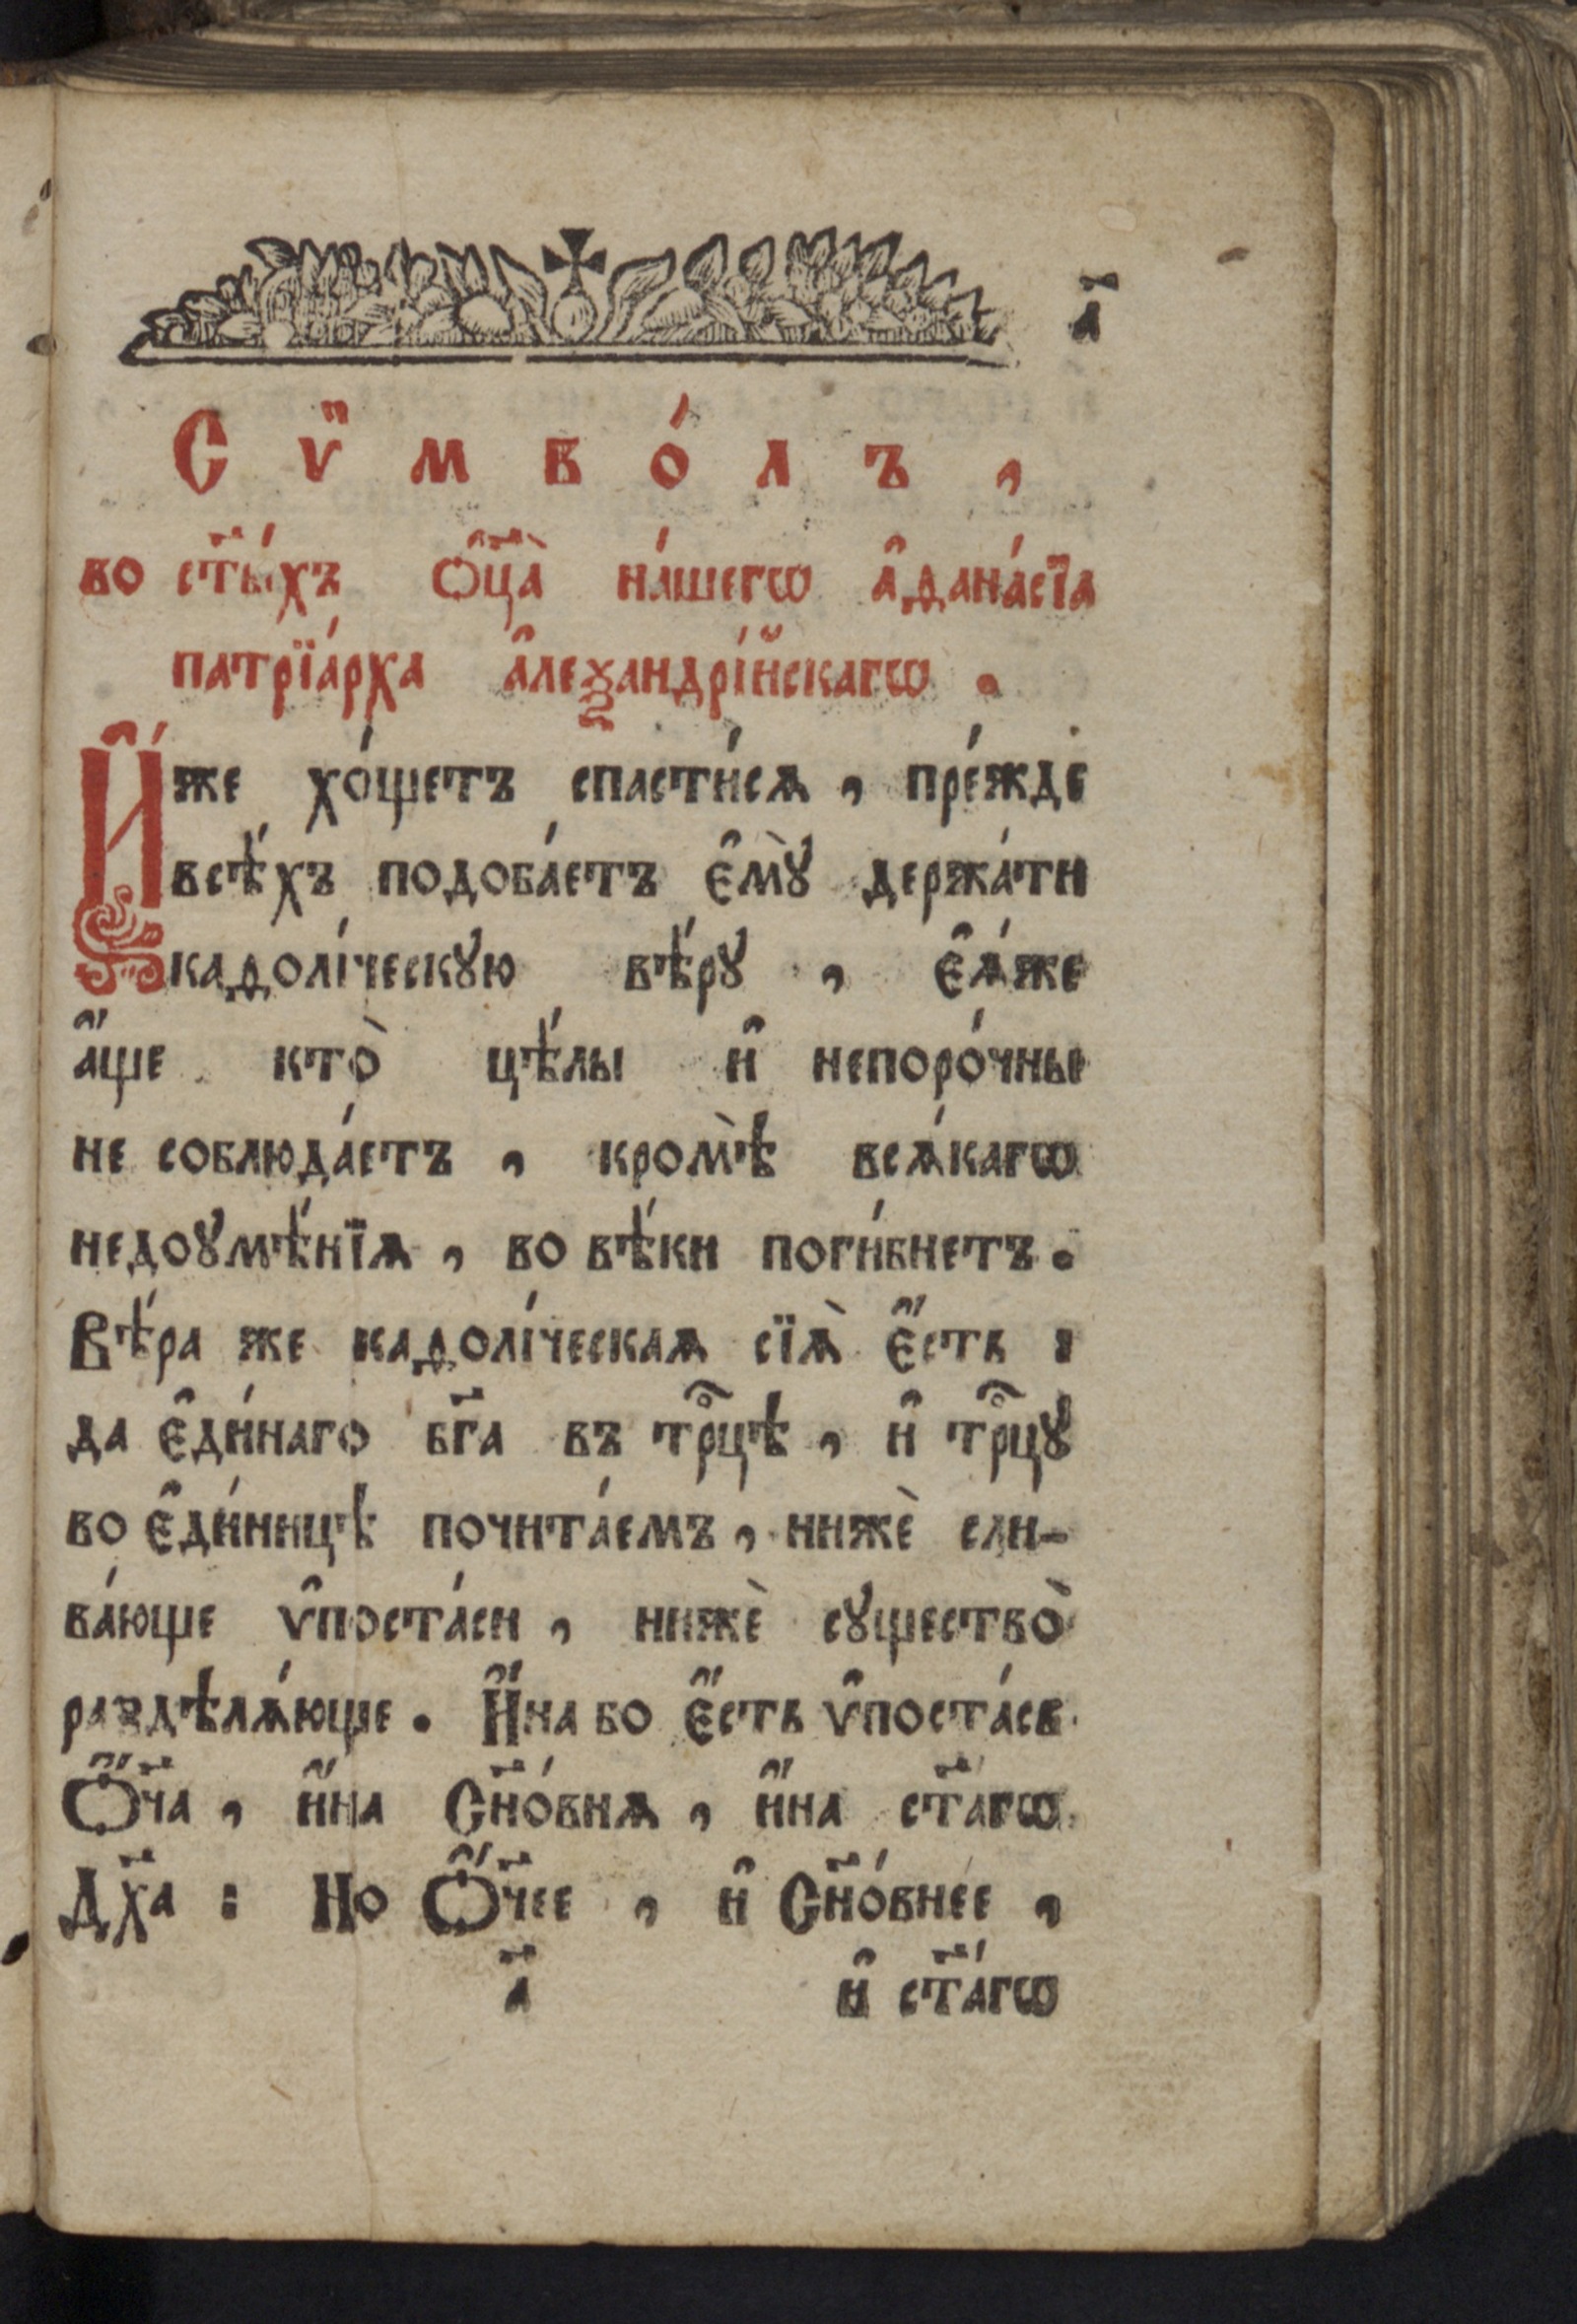 а҃
Сѷ́мво́лъ,
во ст҃ы́хъ Ѻ҆ц҃а̀ на́шегѡ а҆ѳана́сїа
патрїа́рха а҆леѯандрі́йскагѡ.
И҆́же хо́щетъ спасти́сѧ, пре́жде
всѣ́хъ подоба́етъ є҆мꙋ̀ держа́ти
каѳолі́ческꙋю вѣ́рꙋ, є҆ѧ́же
а҆́ще кто̀ цѣ́лы и҆ непоро́чны
не соблюда́етъ, кромѣ̀ всѧ́кагѡ
недоꙋмѣ́нїѧ, во вѣ́ки поги́бнетъ.
Вѣ́ра же каѳолі́ческаѧ сїѧ̀ є҆́сть:
да є҆ди́наго бг҃а въ трⷪ҇цѣ, и҆ трⷪ҇цꙋ
во є҆ди́ницѣ почита́емъ, нижѐ сли-
ва́юще ѵ҆поста́си, нижѐ сꙋщество̀
раздѣлѧ́юще. И҆́на бо є҆́сть ѵ҆поста́сь
Ѻ҆́ч҃а, и҆́на Сн҃о́внѧ, и҆́на ст҃а́гѡ
Дх҃а: Но Ѻ҆́ч҃ее, и҆ Сн҃о́внее,
а҃ и҆ ст҃а́гѡ